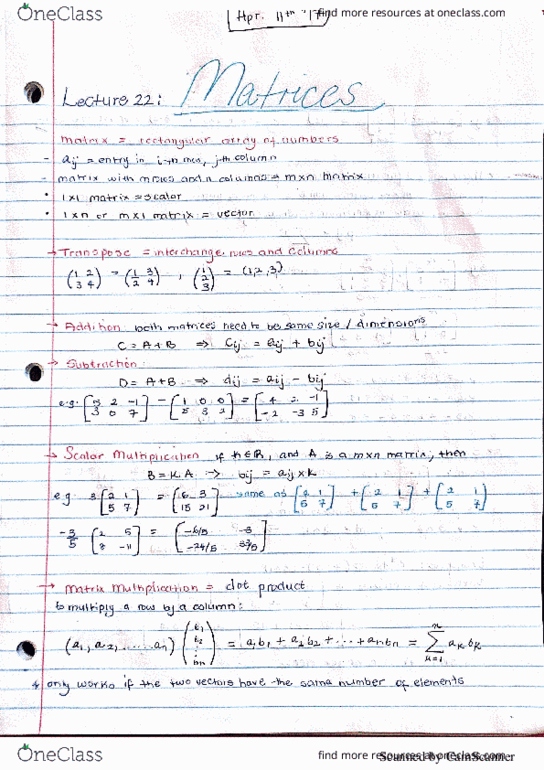 OneClass
Apr. 11th '17
find more resources at oneclass.com
Lecture 22: Matrices
matrix = rectangular array of numbers
- aij = entry in i-th row, j-th column
- matrix with m rows and n columns = mxn matrix
• 1x1 matrix = scalar
• 1xn or mx1 matrix = vector
→ Transpose = interchange rows and columns
(1 2 / 3 4) = (1 3 / 2 4) , (1 / 2 / 3) = (1,2,3)
→ Addition both matrices need to be same size / dimensions
C = A+B ⇒ Cij = aij + bij
→ Subtraction:
D = A+B ⇒ dij = aij - bij
e.g. [5 2 -1 / 3 0 7] - [1 0 0 / 5 3 2] = [4 2 -1 / -2 -3 5]
→ Scalar Multiplication if k∈R, and A is a mxn matrix, then
B = KA → bij = aij x k
eg 3[2 1 / 5 7] = [6 3 / 15 21] same as [2 1 / 5 7] + [2 1 / 5 7] + [2 1 / 5 7]
-3/5 [2 5 / 8 -11] = [-6/5 -3 / -24/5 33/5]
→ matrix multiplication = dot product
to multiply a row by a column:
(a1, a2, ..... an) (b1 / b2 / ⋮ / bn) = a1b1 + a2b2 + ... + anbn = n ∑ k=1 akbk
only works if the two vectors have the same number of elements
OneClass
find more resources at oneclass.com
Scanned by CamScanner